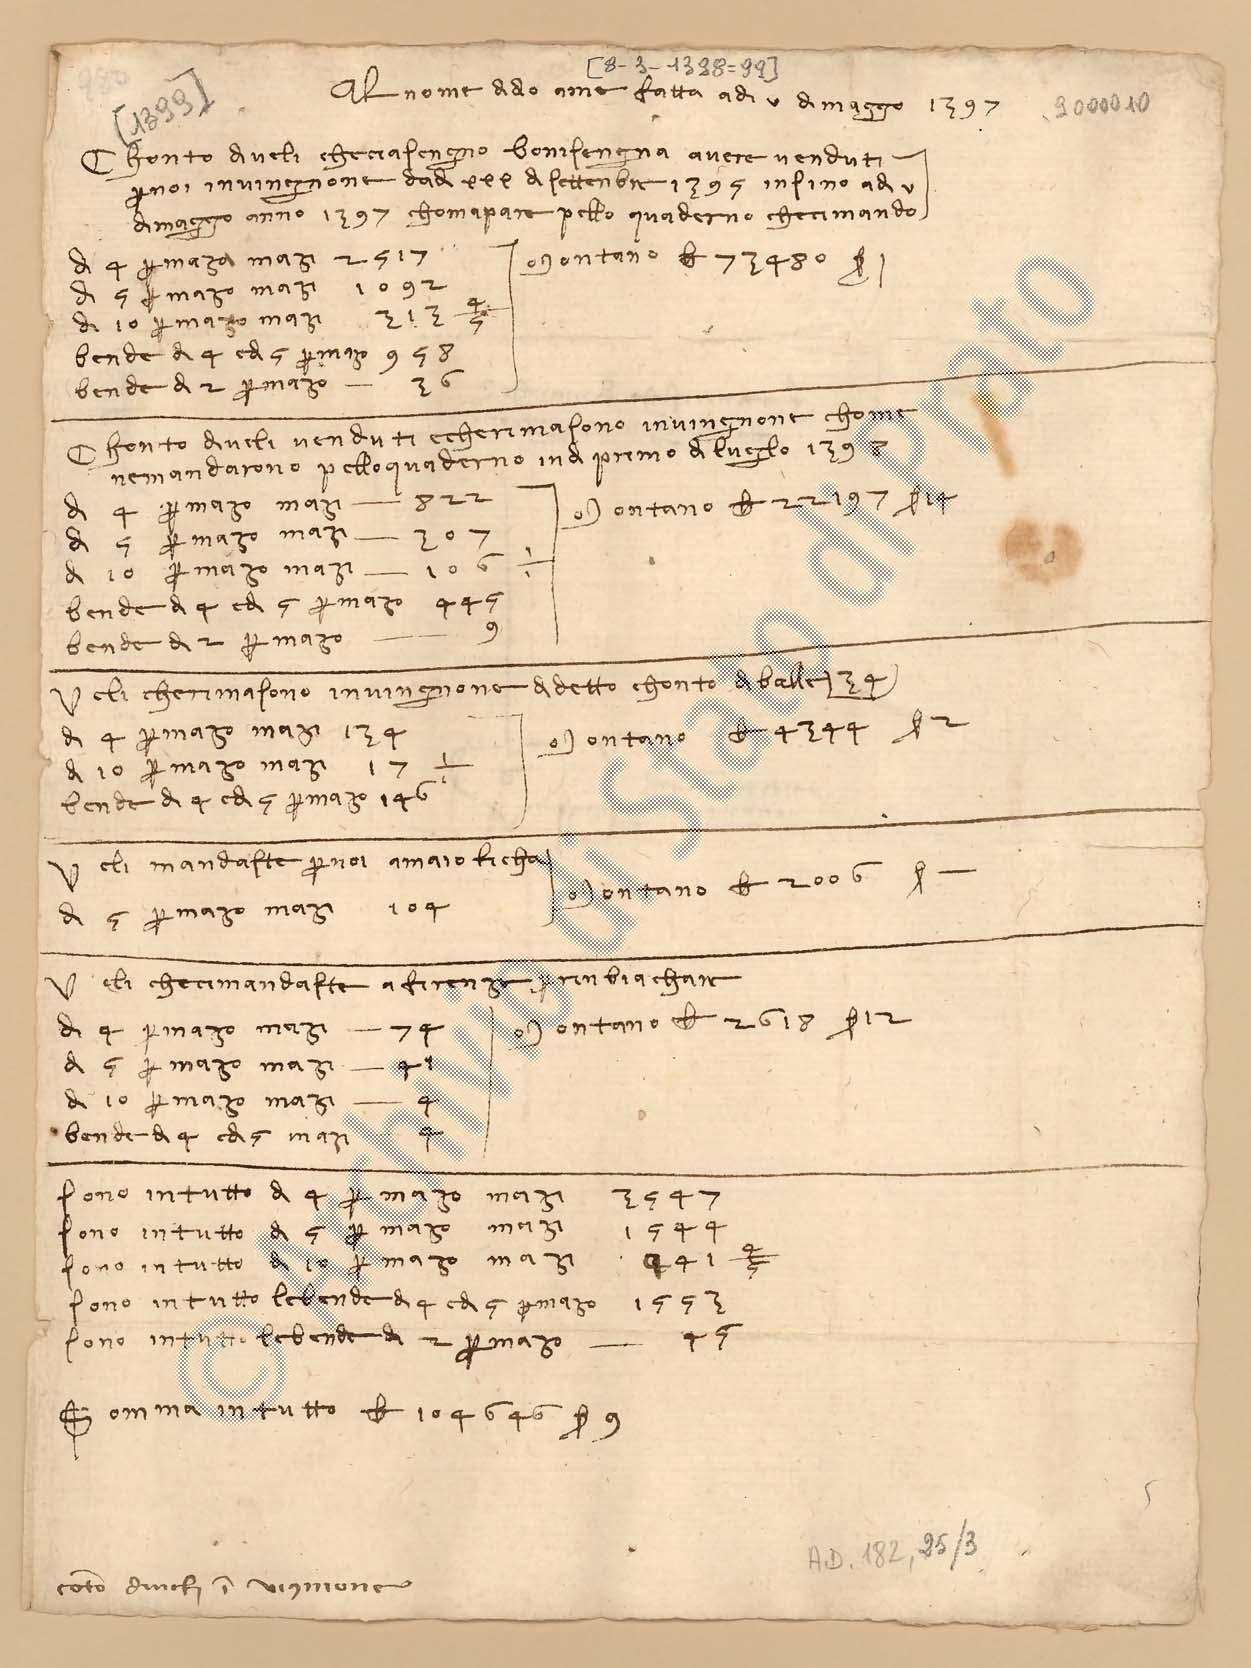 [8-3-1398=99]
Al nome di dio ame fatta adi v di maggo 1397
9000010
[1399]
Chonto di veli checci asengno bonisengna avere venduti
p noi in vingnione da di xxx di settenbre 1395 insino adi v
di maggo anno 1397 chom apare pello quaderno checci mando
di 4 p mazo mazi 2517
di 5 p mazo mazi 1092
di 10 p mazo mazi 313 4/5
bende di 4 e di 5 p mazo 958
bende di 2 p mazo — 36
Montano 73480 1
Chonto di veli venduti e che rimasono in vingnone chome
ne mandarono pello quaderno in di primo di luglo 1398
di 4 p mazo mazi — 822
di 5 p mazo mazi — 307
di 10 p mazo mazi — 106
bende di 4 e di 5 p mazo 445
bende di 2 p mazo — 9
Montano 22197 14
Veli che rimasono in vingnone di detto chonto di balle 134
di 4 p mazo mazi 134
di 10 p mazo mazi 17
bende di 4 e di 5 p mazo 146
Montano 4344 2
Veli mandaste p noi a maioricha
di 5 p mazo mazi 104
Montano 2006 —
Veli checci mandaste a firenze p rinbiachare
di 4 p mazo mazi — 74
di 5 p mazo mazi — 41
di 10 p mazo mazi — 4
bende di 4 e di 5 mazi — 4
Montano 2618 12
sono in tutto di 4 p mazo mazi 3547
sono in tutto di 5 p mazo mazi 1544
sono in tutto di 10 p mazo mazi 441 4/5
sono in tutto le bende di 4 e di 5 p mazo 1553
sono in tutto le bende di 2 p mazo — 45
Somma in tutto 104646 9
A.D. 182, 25/3
conto di veli i vignone
© Archivio di Stato di Prato